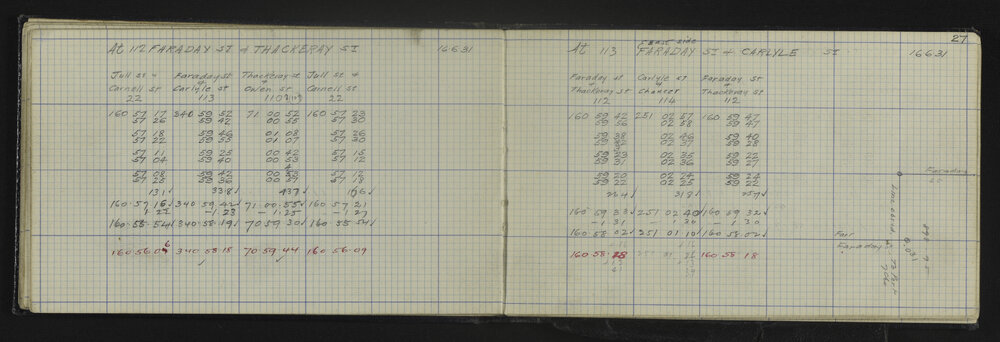 At 112 FARADAY ST & THACKERAY ST 16631
Jull St & Faraday St Thackeray St Jull St &
Carnell St Carlyle St Owen St Carnell St
22 113 110 22
160 57 17 340 59 52 71 00 52 160 57 23
57 26 59 42 00 55 57 30
57 18 59 46 01 08 57 26
57 22 59 55 01 07 57 30
57 11 59 25 00 42 57 15
57 04 59 40 00 53 57 12
57 08 59 42 00 53 57 12
57 25 59 36 00 57 57 18
131 338 437 166
160.57 16 340 59.42 71.00.55 160 57 21
1 22 -1.23 -1.25 -1 27
160.55.54 340 58.19 70 59 30 160 55 54
160.56.04 340 58.18 70 59.44 160 56.09
27
East side
At 113 FARADAY ST & CARLYLE ST 16631
Faraday St Carlyle St Faraday St
& & &
Thackeray St Chaucer Thackeray St
112 114 112
160 59 42 251 02 57 160 59 47
59 56 02 58 59 47
59 38 02 46 59 40
02 37 59 28
59 23 02 35 59 22
59 31 02 36 59 27
59 20 02 24 59 24
59 22 02 25 59 22
264 318 257
160 59 33 251 02 40 160 59 32
- 1 31 - 1 30 - 1 30
160 58 02 251 01 10 160 58 02
160 58 160 58 18
Faraday
Fair
Faraday